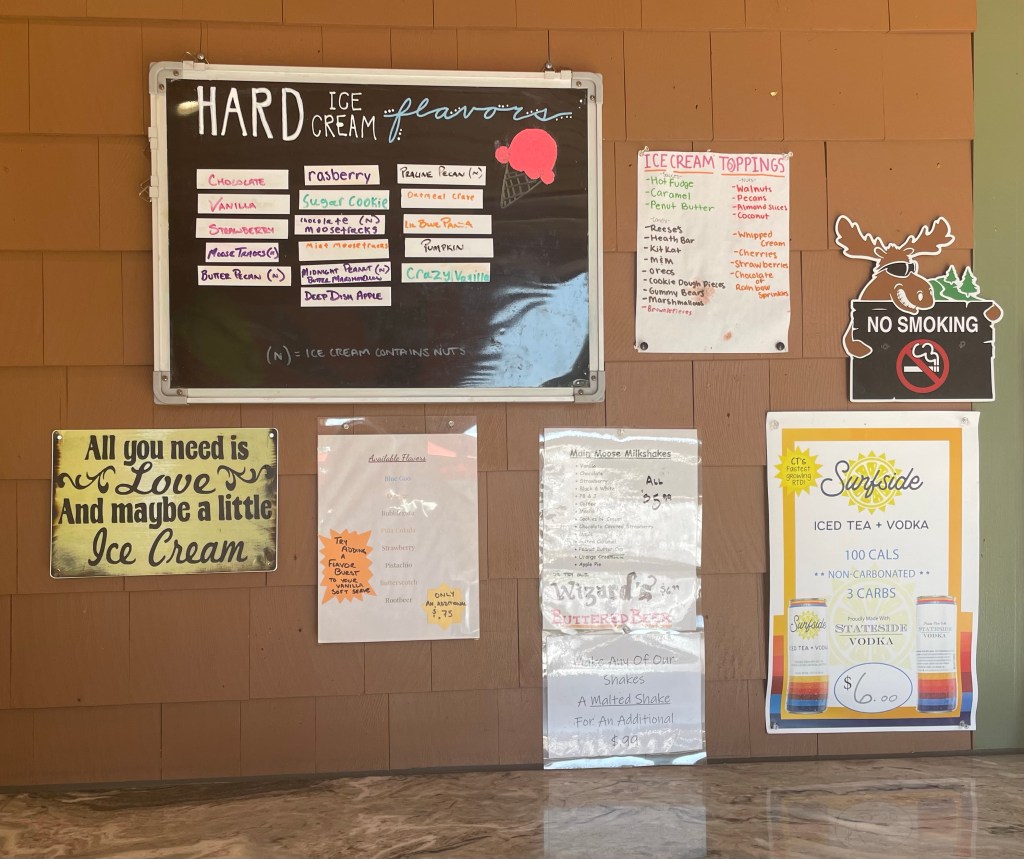 HARD ICE CREAM flavors
CHOCOLATE
VANILLA
STRAWBERRY
MOOSE TRACKS (N)
BUTTER PECAN (N)
rasberry
Sugar Cookie
chocolate (N)
moosetracks
Mint moosetracks
MIDNIGHT PEANUT (N)
BUTTER MARSHMALLOW
DEEP DISH APPLE
PRALINE PECAN (N)
Oatmeal Crave
PUMPKIN
Crazy Vanilla
(N) = ICE CREAM CONTAINS NUTS
ICE CREAM TOPPINGS
- Hot Fudge
- Caramel
- Penut Butter
- Reese's
- Heath Bar
- Kit Kat
- M+M
- oreos
- Cookie Dough Pieces
- Gummy Bears
- Marshmallows
- Walnuts
- Pecans
- Almond Slices
- Coconut
- Whipped
Cream
- Cherries
- Strawberries
- Chocolate
or
Rainbow
Sprinkles
NO SMOKING
All you need is
Love
And maybe a little
Ice Cream
Available Flavors
Blue Goo
Bubblegum
Strawberry
Pistachio
Butterscotch
Rootbeer
TRY
ADDING
A
FLAVOR
BURST
TO YOUR
VANILLA
SOFT SERVE
ONLY
AN ADDITIONAL
$.75
Main Moose Milkshakes
Chocolate
Strawberry
Black & White
Coffee
Peanut Butter
Orange Creamsicle
Apple Pie
ALL
$5.99
Wizard's $6.99
BUTTERED BEER
Make Any Of Our
Shakes
A Malted Shake
For An Additional
$.99
CT'S
Fastest
growing
RTD!
Surfside
ICED TEA + VODKA
100 CALS
** NON-CARBONATED **
3 CARBS
Proudly Made With
STATESIDE
VODKA
$6.00
Surfside
ICED TEA + VODKA
STATESIDE
VODKA